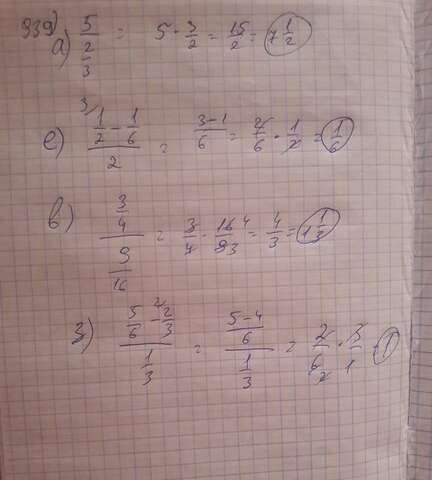 939)
а) 5/(2/3) = 5 · 3/2 = 15/2 = 7 1/2
е) (1/2 - 1/6)/2 = (3-1)/6 = 2/6 · 1/2 = 1/6
в) (3/4)/(9/16) = 3/4 · 16/9 = 4/3 = 1 1/3
з) (5/6 - 2/3)/(1/3) = ((5-4)/6)/(1/3) = 2/6 · 3/1 = 1